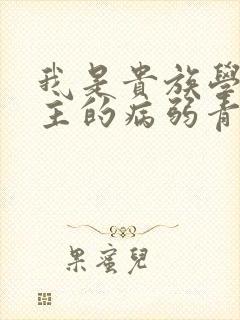 我是貴族學
主的病弱青
果蜜兒